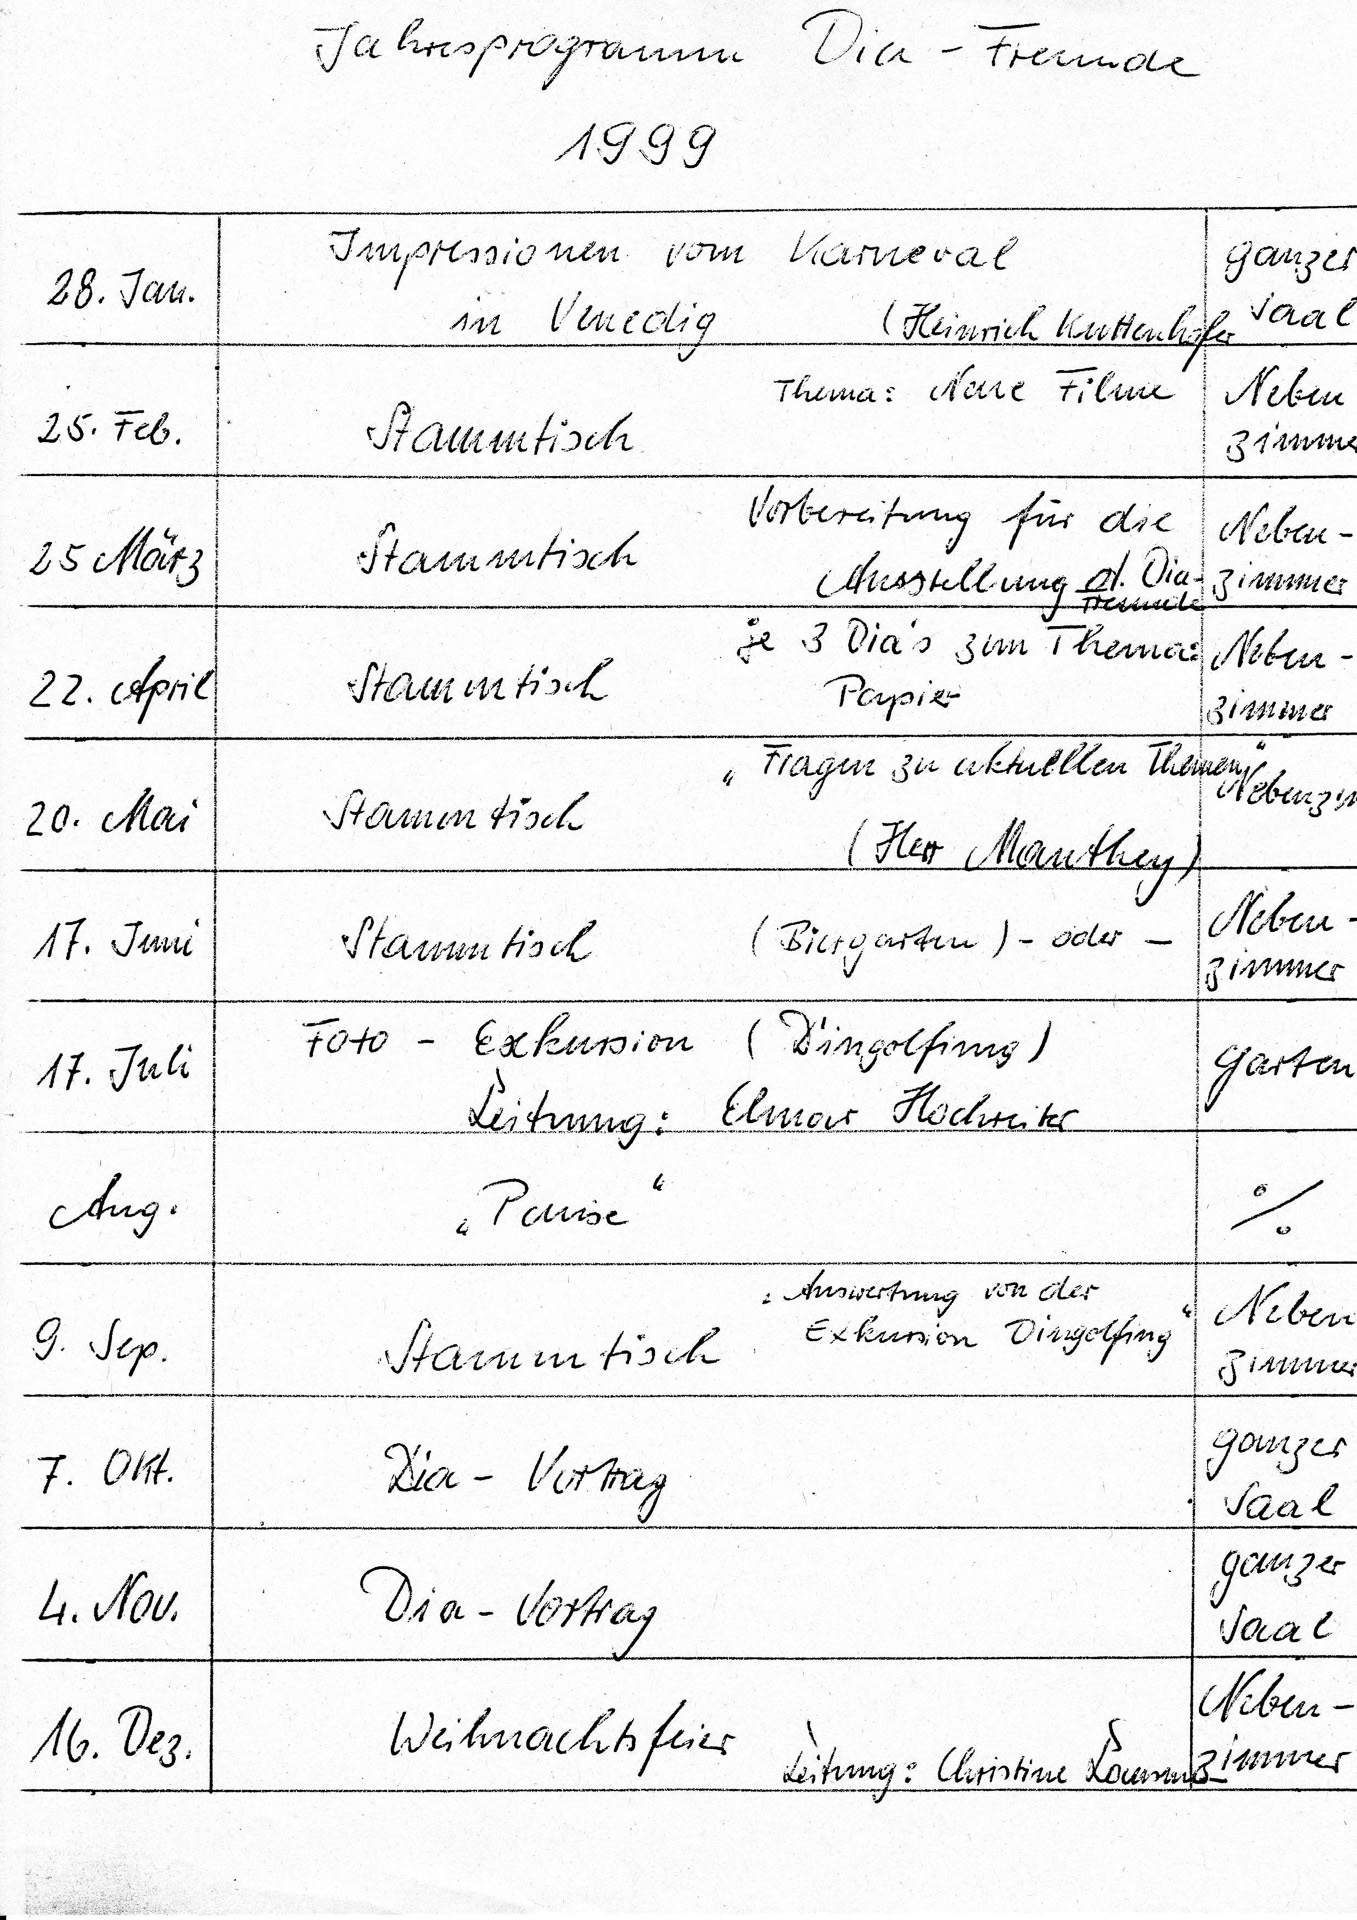 Jahresprogramm Dia - Freunde
1999
28. Jan.
Impressionen vom Karneval
in Venedig (Heinrich Kuttenhofer
ganzer
Saal
25. Feb.
Stammtisch
Thema: Neue Filme
Neben
zimme
25 März
Stammtisch
Vorbereitung für die
Ausstellung d. Dia-
Freunde
Neben-
zimmer
22. April
Stammtisch
je 3 Dia's zum Thema:
Papier
Neben-
zimmer
20. Mai
Stammtisch
„Fragen zu aktuellen Themen"
(Herr Manthey)
Nebenzim
17. Juni
Stammtisch
(Biergarten) - oder -
Neben-
zimmer
17. Juli
Foto - Exkursion (Dingolfing)
Leitung: Elmar Hochreiter
Garten
Aug.
„Pause"
%
9. Sep.
Stammtisch
„Auswertung von der
Exkursion Dingolfing"
Neben
zimmer
7. Okt.
Dia - Vortrag
ganzer
Saal
4. Nov.
Dia - Vortrag
ganzer
Saal
16. Dez.
Weihnachtsfeier
Leitung: Christine
Neben-
zimmer